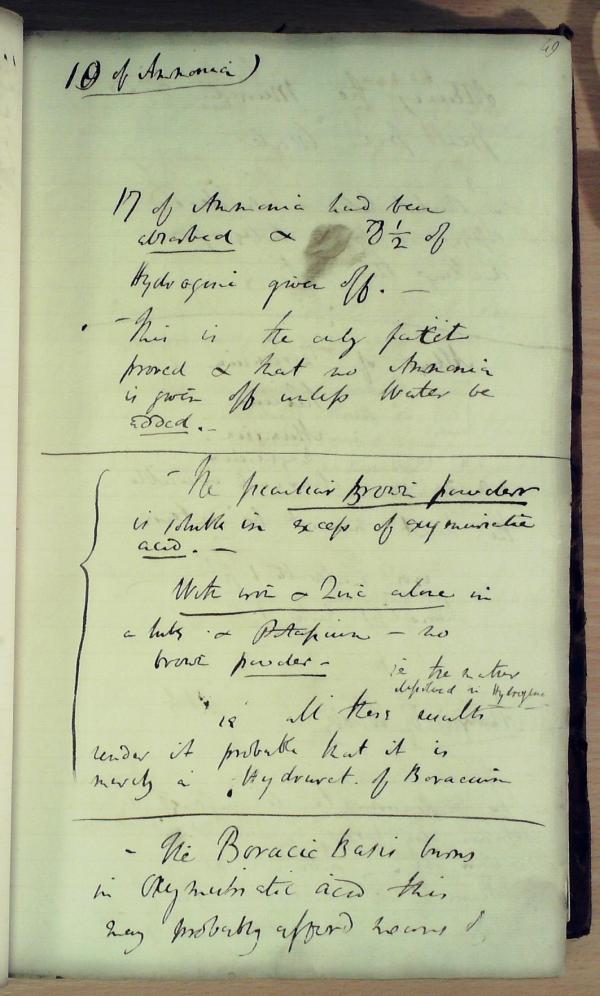 49
10 of Ammonia)
17 of Ammonia had been
absorbed & 7 1/2 of
Hydrogene given off. —
- This is the only fact it
proved & that no Ammonia
is given off unless Water be
added. —
- The peculiar Brown powder
is soluble in excess of oxymuriatic
acid. —
With iron & Zinc alone in
a tube & Potassium - no
brown powder -
ie the matter
deposited in Hydrogene
all these results
render it probable that it is
merely a Hydruret of Boracium
- The Boracic Basis burns
in Oxymuriatic acid this
may probably afford means of